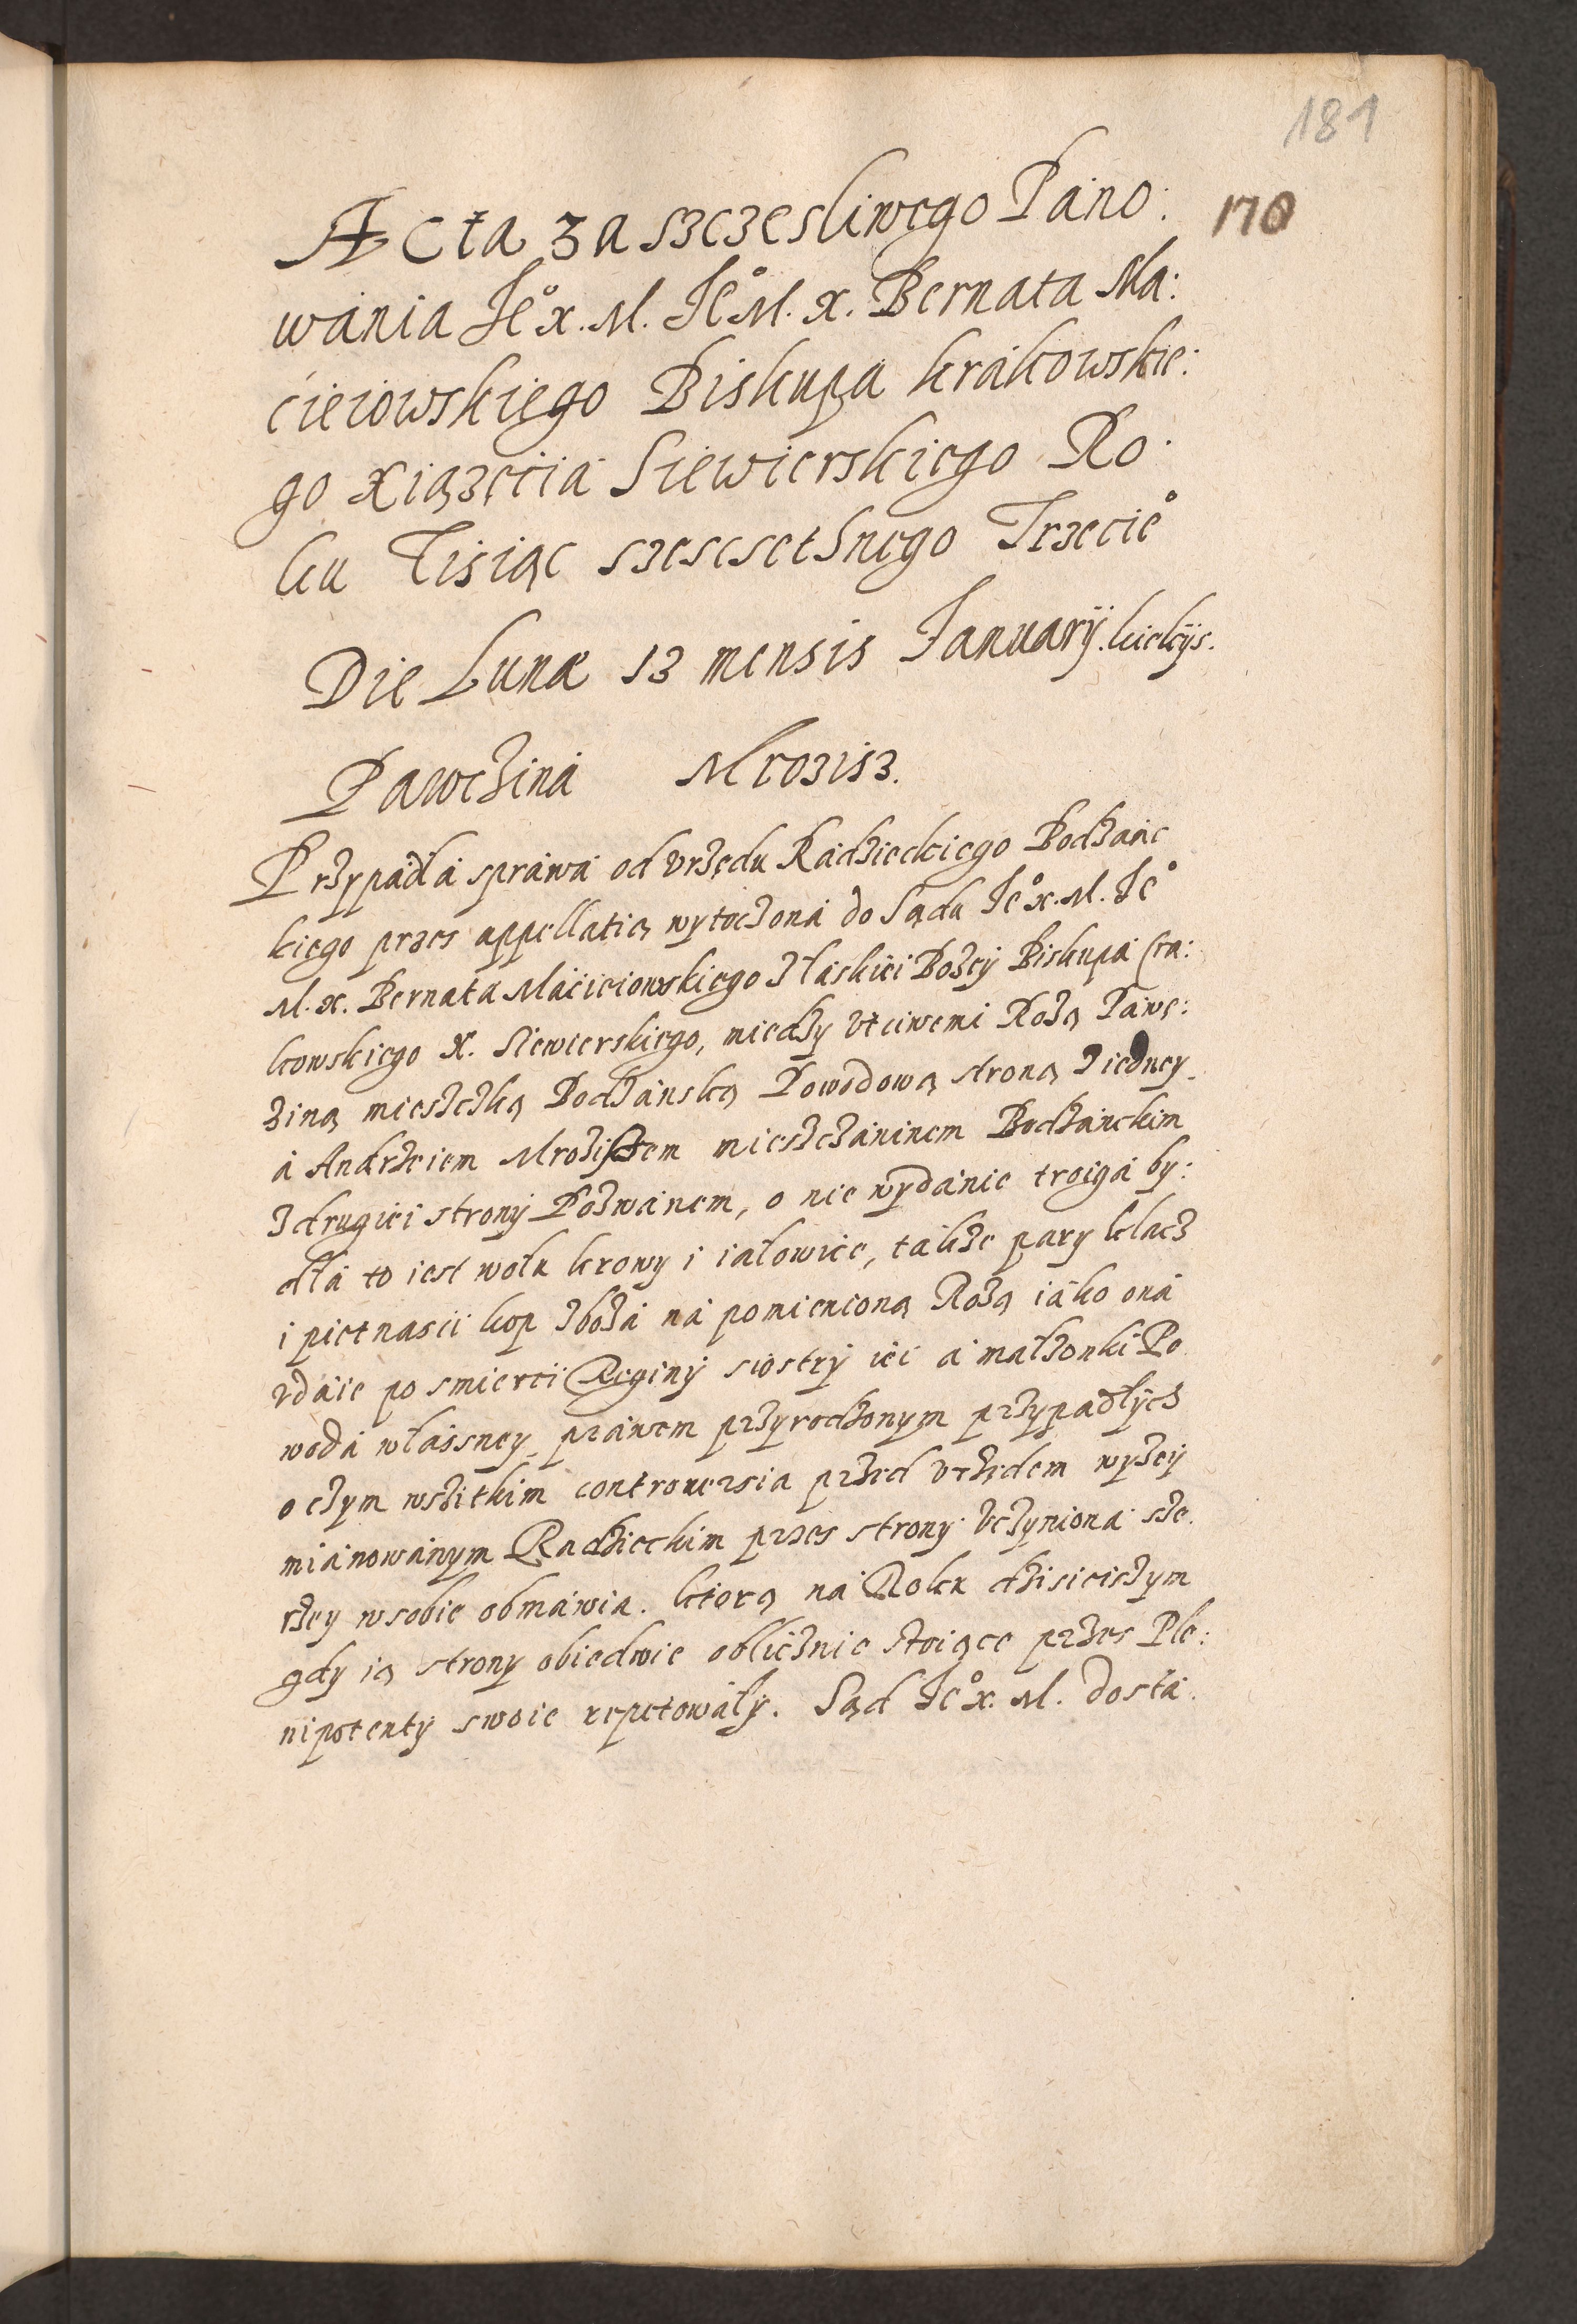 181
170
Acta za szczesliwego Páno:
wánia Je° x. M. Je° M. x. Bernata Ma:
ćieiowskięgo Biskupa krákowskie:
go Xiązęćiá Siewierskiego Ro:
ku Tisiąc szescsethnego Trzecie°
Die Lunæ 13 mensis Januarÿ. kielcÿs.
Pawęzina Mrozisz.
Przypadłá spráwá od vrzędu Rádzieckiego Bodzánc
kiego przes appellatią wytoczoná do Sądu Je° x. M. Je°
M. x. Bernata Maćieiowskiego z łáskiei Bozeÿ Biskupá Cra:
kowskiego X. Siewierskiego, miedzy vtciwemi Rozą Páwę:
ziną miesczką Bodzánską Powodową stroną z iedney
á Andrzeiem Mroziszem miesczáninem Bodzánckim
z drugiei stronÿ Pozwánem, o nie wÿdánie troigá by:
dłá to iest wołu krowy i iałowice, także pary klacz
i pietnascii kop zbozá ná pomienioną Rozą iáko oná
vdáie po smierci Reginÿ siostrÿ iei á małzonki Po
wodá własney práwem przyrodzonym przypadłÿch
o czym wszitkim controuersia przed vrzędem wyzeÿ
miánowánym Radzieckim przes strony vczyniona sze
rzey w sobie obmáwia. ktorą ná Roku dzisieiszym
gdy ią strony obiedwie oblicznie stoiące przes Ple:
nipotentÿ swoie repetowáłÿ. Sąd Je° x. M. dostá